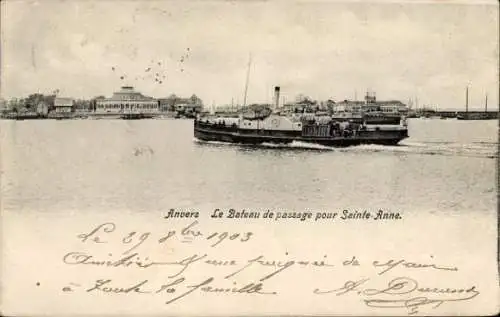 Anvers Le Bateau de passage pour Sainte-Anne.
Le 29 8bre 1903
Amitiés aux de
à toute la famille. A. Durand